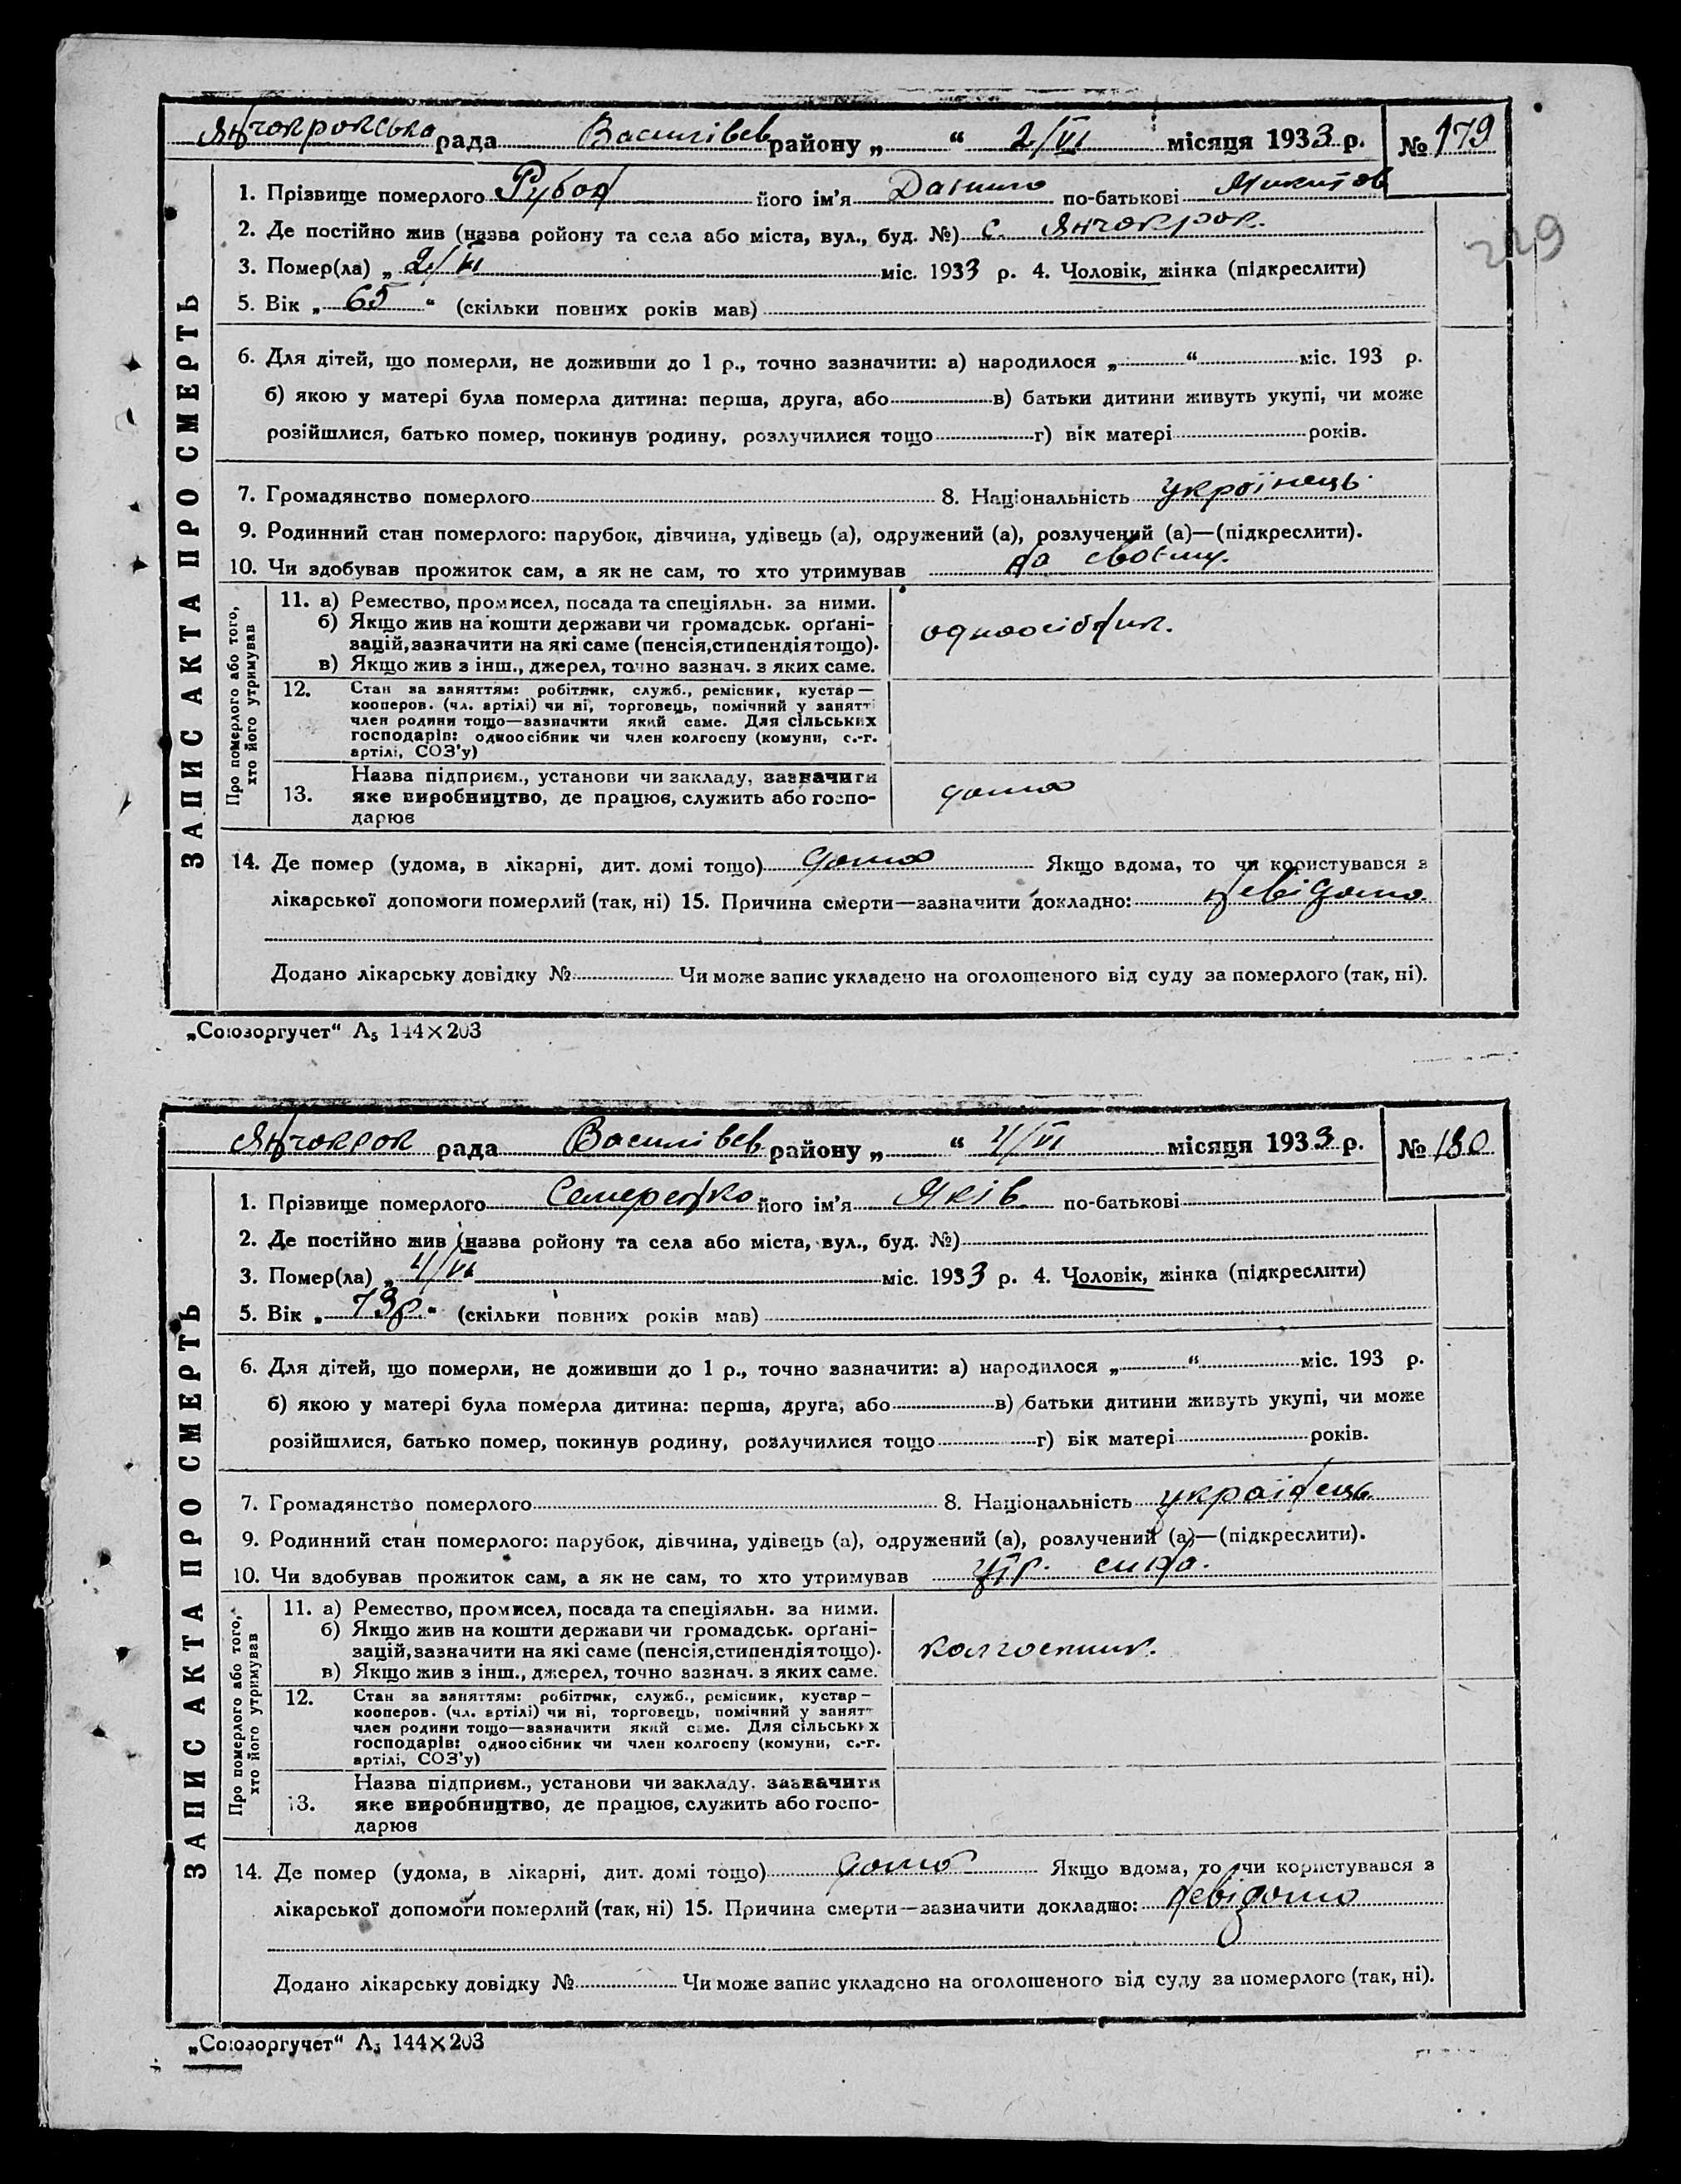 Янчокрокська рада Василівев району „ “ 2/VI місяця 1933 р. № 179
1. Прізвище померлого Рубан його ім'я Данило по-батькові Микитов
2. Де постійно жив (назва ройону та села або міста, вул., буд. №) с. Янчокрок.
3. Помер(ла) „ 2/VI міс. 1933 р. 4. Чоловік, жінка (підкреслити)
249
5. Вік „ 65 “ (скільки повних років мав)
6. Для дітей, що померли, не доживши до 1 р., точно зазначити: а) народилося „ “ міс. 193 р.
б) якою у матері була померла дитина: перша, друга, або в) батьки дитини живуть укупі, чи може
розійшлися, батько помер, покинув родину, розлучилися тощо г) вік матері років.
7. Громадянство померлого 8. Національність українець.
9. Родинний стан померлого: парубок, дівчина, удівець (а), одружений (а), розлучений (а)—(підкреслити).
10. Чи здобував прожиток сам, а як не сам, то хто утримував на своєму.
ЗАПИС АКТА ПРО СМЕРТЬ
Про померлого або того,
хто його утримував
11. а) Ремество, промисел, посада та спеціяльн. за ними.
б) Якщо жив на кошти держави чи громадськ. орґані-
зацій, зазначити на які саме (пенсія, стипендія тощо).
в) Якщо жив з інш., джерел, точно зазнач. з яких саме.
одноосібник.
12. Стан за заняттям: робітник, служб., ремісник, кустар—
кооперов. (чл. артілі) чи ні, торговець, помічний у занятт
член родини тощо—зазначити який саме. Для сільських
господарів: одноосібник чи член колгоспу (комуни, с.-г.
артілі, СОЗ'у)
13. Назва підприєм., установи чи закладу, зазначити
яке виробництво, де працює, служить або госпо-
дарює
дома
14. Де помер (удома, в лікарні, дит. домі тощо) дома Якщо вдома, то чи користувався з
лікарської допомоги померлий (так, ні) 15. Причина смерти—зазначити докладно: невідомо.
Додано лікарську довідку № Чи може запис укладено на оголошеного від суду за померлого (так, ні).
„Союзоргучет“ А5 144×203
Янчокрок рада Василівев району „ “ 4/VI місяця 1933 р. № 180
1. Прізвище померлого Семеренко його ім'я Яків по-батькові
2. Де постійно жив (назва ройону та села або міста, вул., буд. №)
3. Помер(ла) „ 4/VI міс. 1933 р. 4. Чоловік, жінка (підкреслити)
5. Вік „ 73р “ (скільки повних років мав)
6. Для дітей, що померли, не доживши до 1 р., точно зазначити: а) народилося „ “ міс. 193 р.
б) якою у матері була померла дитина: перша, друга, або в) батьки дитини живуть укупі, чи може
розійшлися, батько помер, покинув родину, розлучилися тощо г) вік матері років.
7. Громадянство померлого 8. Національність українець
9. Родинний стан померлого: парубок, дівчина, удівець (а), одружений (а), розлучений (а)—(підкреслити).
10. Чи здобував прожиток сам, а як не сам, то хто утримував утр. сина.
ЗАПИС АКТА ПРО СМЕРТЬ
Про померлого або того,
хто його утримував
11. а) Ремество, промисел, посада та спеціяльн. за ними.
б) Якщо жив на кошти держави чи громадськ. орґані-
зацій, зазначити на які саме (пенсія, стипендія тощо).
в) Якщо жив з інш., джерел, точно зазнач. з яких саме.
колгоспник.
12. Стан за заняттям: робітник, служб., ремісник, кустар—
кооперов. (чл. артілі) чи ні, торговець, помічний у занятт
член родини тощо—зазначити який саме. Для сільських
господарів: одноосібник чи член колгоспу (комуни, с.-г.
артілі, СОЗ'у)
13. Назва підприєм., установи чи закладу, зазначити
яке виробництво, де працює, служить або госпо-
дарює
14. Де помер (удома, в лікарні, дит. домі тощо) дома Якщо вдома, то чи користувався з
лікарської допомоги померлий (так, ні) 15. Причина смерти—зазначити докладно: невідомо
Додано лікарську довідку № Чи може запис укладено на оголошеного від суду за померлого (так, ні).
„Союзоргучет“ А5 144×203